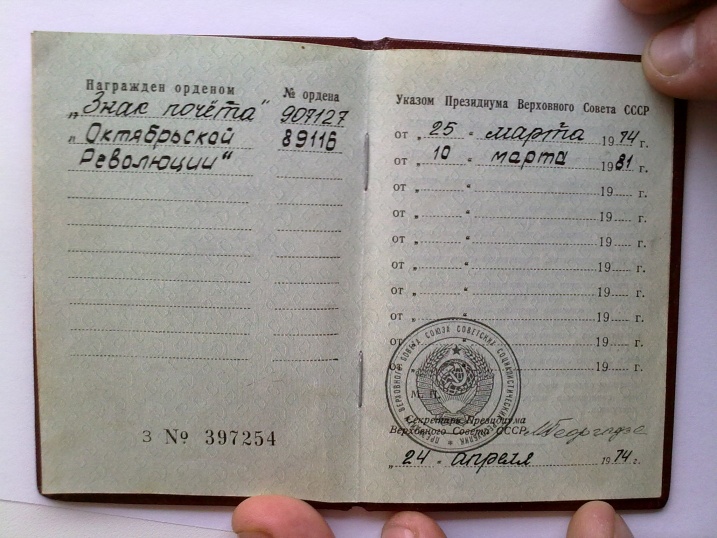 Награжден орденом № ордена
„Знак почёта" 907127
„Октябрьской 89116
Революции"
З № 397254
Указом Президиума Верховного Совета СССР
от „ 25 " марта 1974 г.
от „ 10 " марта 1981 г.
от „ " 19 г.
от „ " 19 г.
от „ " 19 г.
от „ " 19 г.
от „ " 19 г.
от „ " 19 г.
от „ " 19 г.
от „ " 19 г.
М. П.
Секретарь Президиума
Верховного Совета СССР
М Георгадзе
„ 24 " апреля 1974 г.